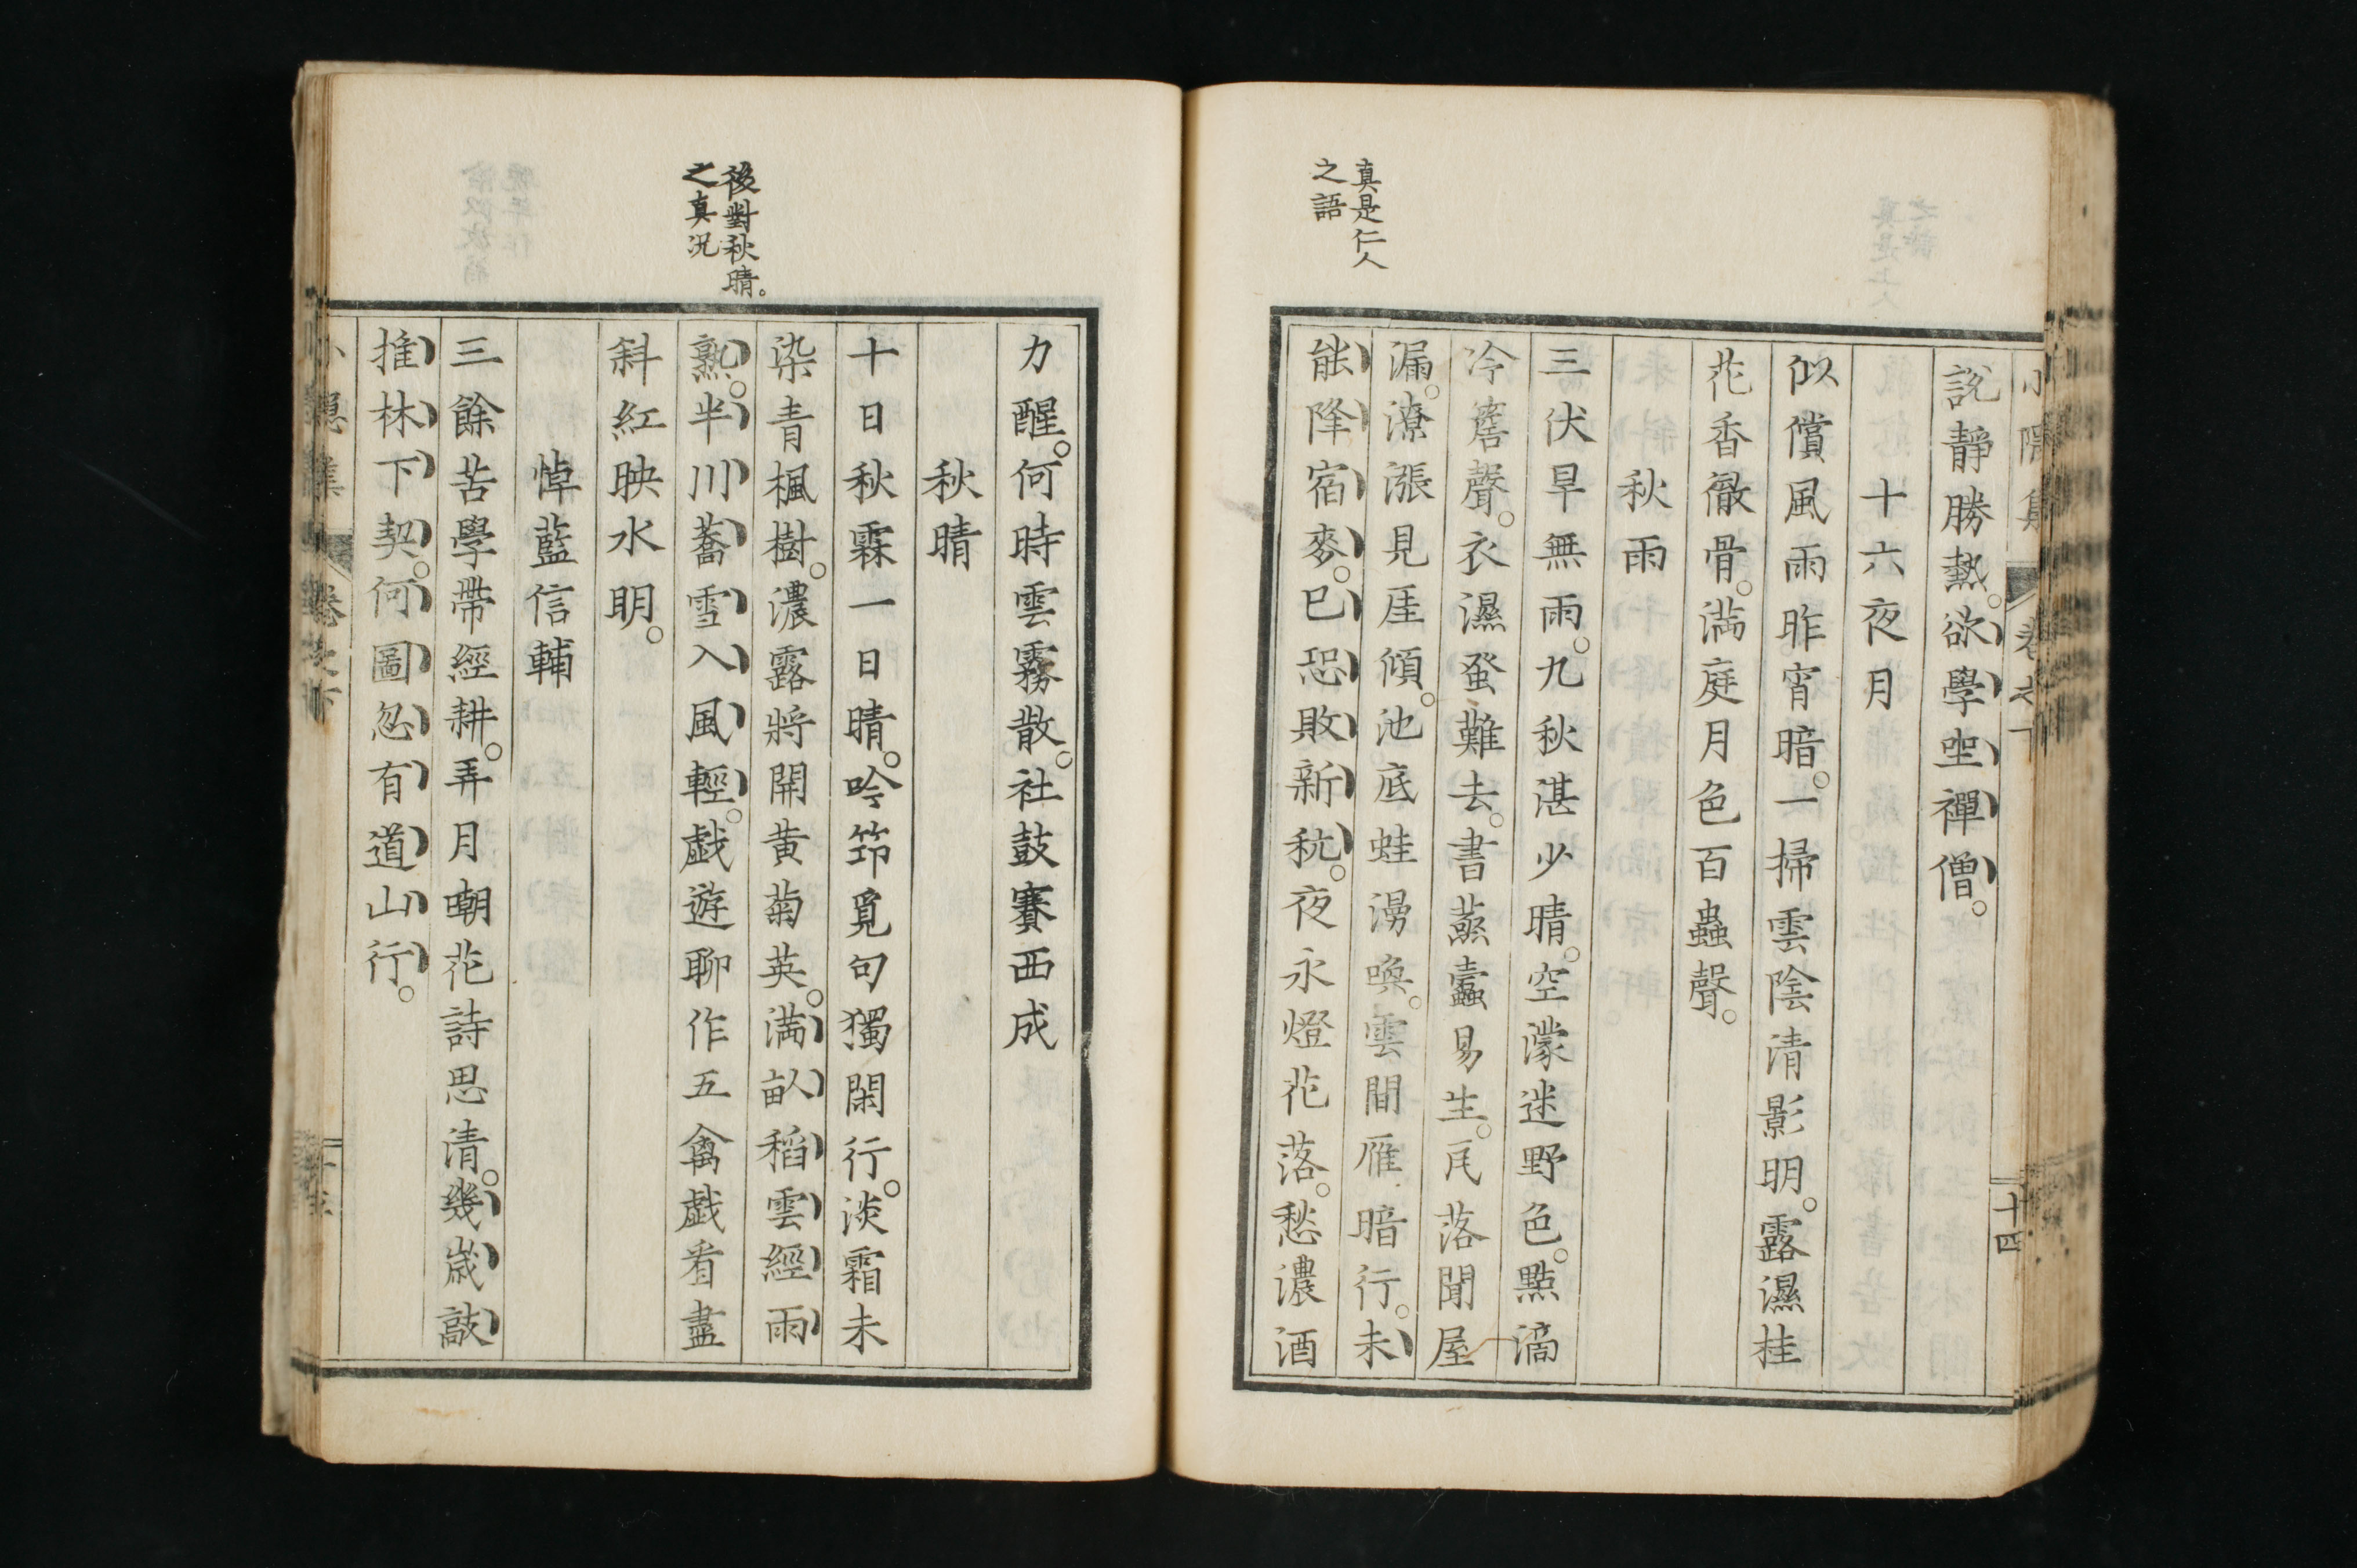 真是仁人
之語
說靜勝熱。欲學坐禪僧。
十六夜月
似償風雨昨宵暗。一掃雲陰清影明。露濕桂
花香徹骨。満庭月色百蟲聲。
秋雨
三伏旱無雨。九秋湛少晴。空濛迷野色。點滴
冷窓聲。衣濕蛩難去。書蒸蠹易生。瓦落聞屋
漏。潦漲見厓傾。池底蛙湧喚。雲間雁暗行。未
能降宿麥。已恐敗新秔。夜永燈花落。愁濃酒
十四
後對秋晴。
之真況
力醒。何時雲霧散。社鼓賽西成
秋晴
十日秋霖一日晴。吟筇覓句獨閑行。淡霜未
染青楓樹。濃露將開黄菊英。満畝稻雲經雨
熟。半川蕎雪入風輕。戯遊聊作五禽戯看盡
斜紅映水明。
悼藍信輔
三餘苦學帶經耕。弄月嘲花詩思清。幾歲敲
推林下契。何圖忽有道山行。